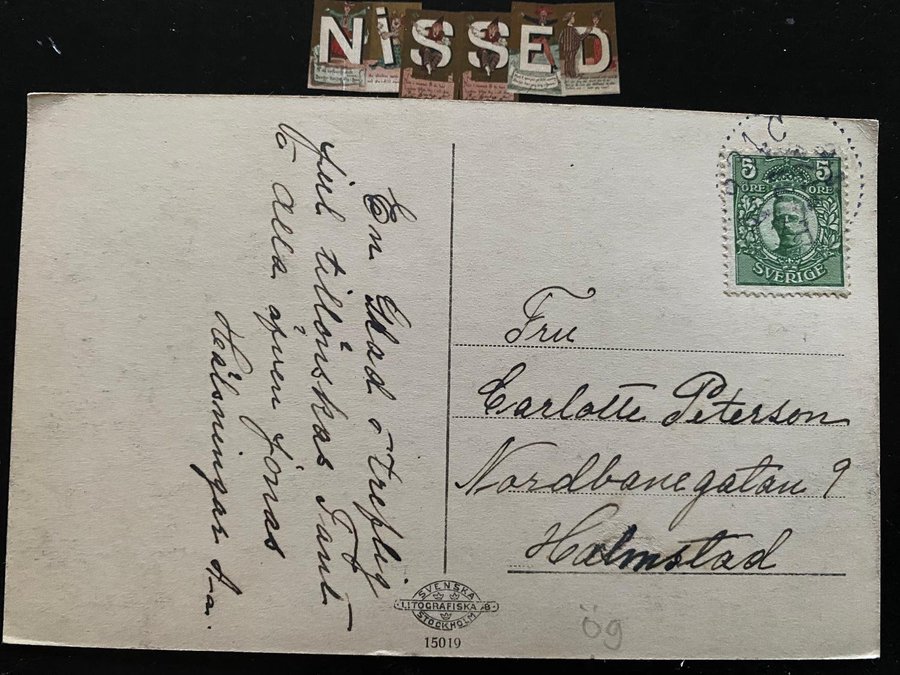 NiSSED
En Glad o Treflig
jul tillönskas Tant
o alla äfven Jonas
Hälsningar A-a.
5 5
ÖRE ÖRE
SVERIGE
Fru
Carlotte Peterson
Nordbanegatan 9
Halmstad
SVENSKA
LITOGRAFISKA
STOCKHOLM
15019
ög